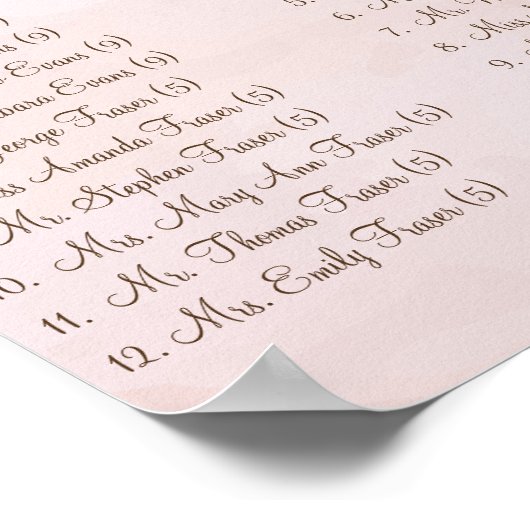 (9)
Evans (9)
Evans (9)
George Fraser (5)
Amanda Fraser (5)
Mr. Stephen Fraser (5)
10. Mrs. Mary Ann Fraser (5)
11. Mr. Thomas Fraser (5)
12. Mrs. Emily Fraser (5)
5.
6.
7. Mr.
8. Miss
9.